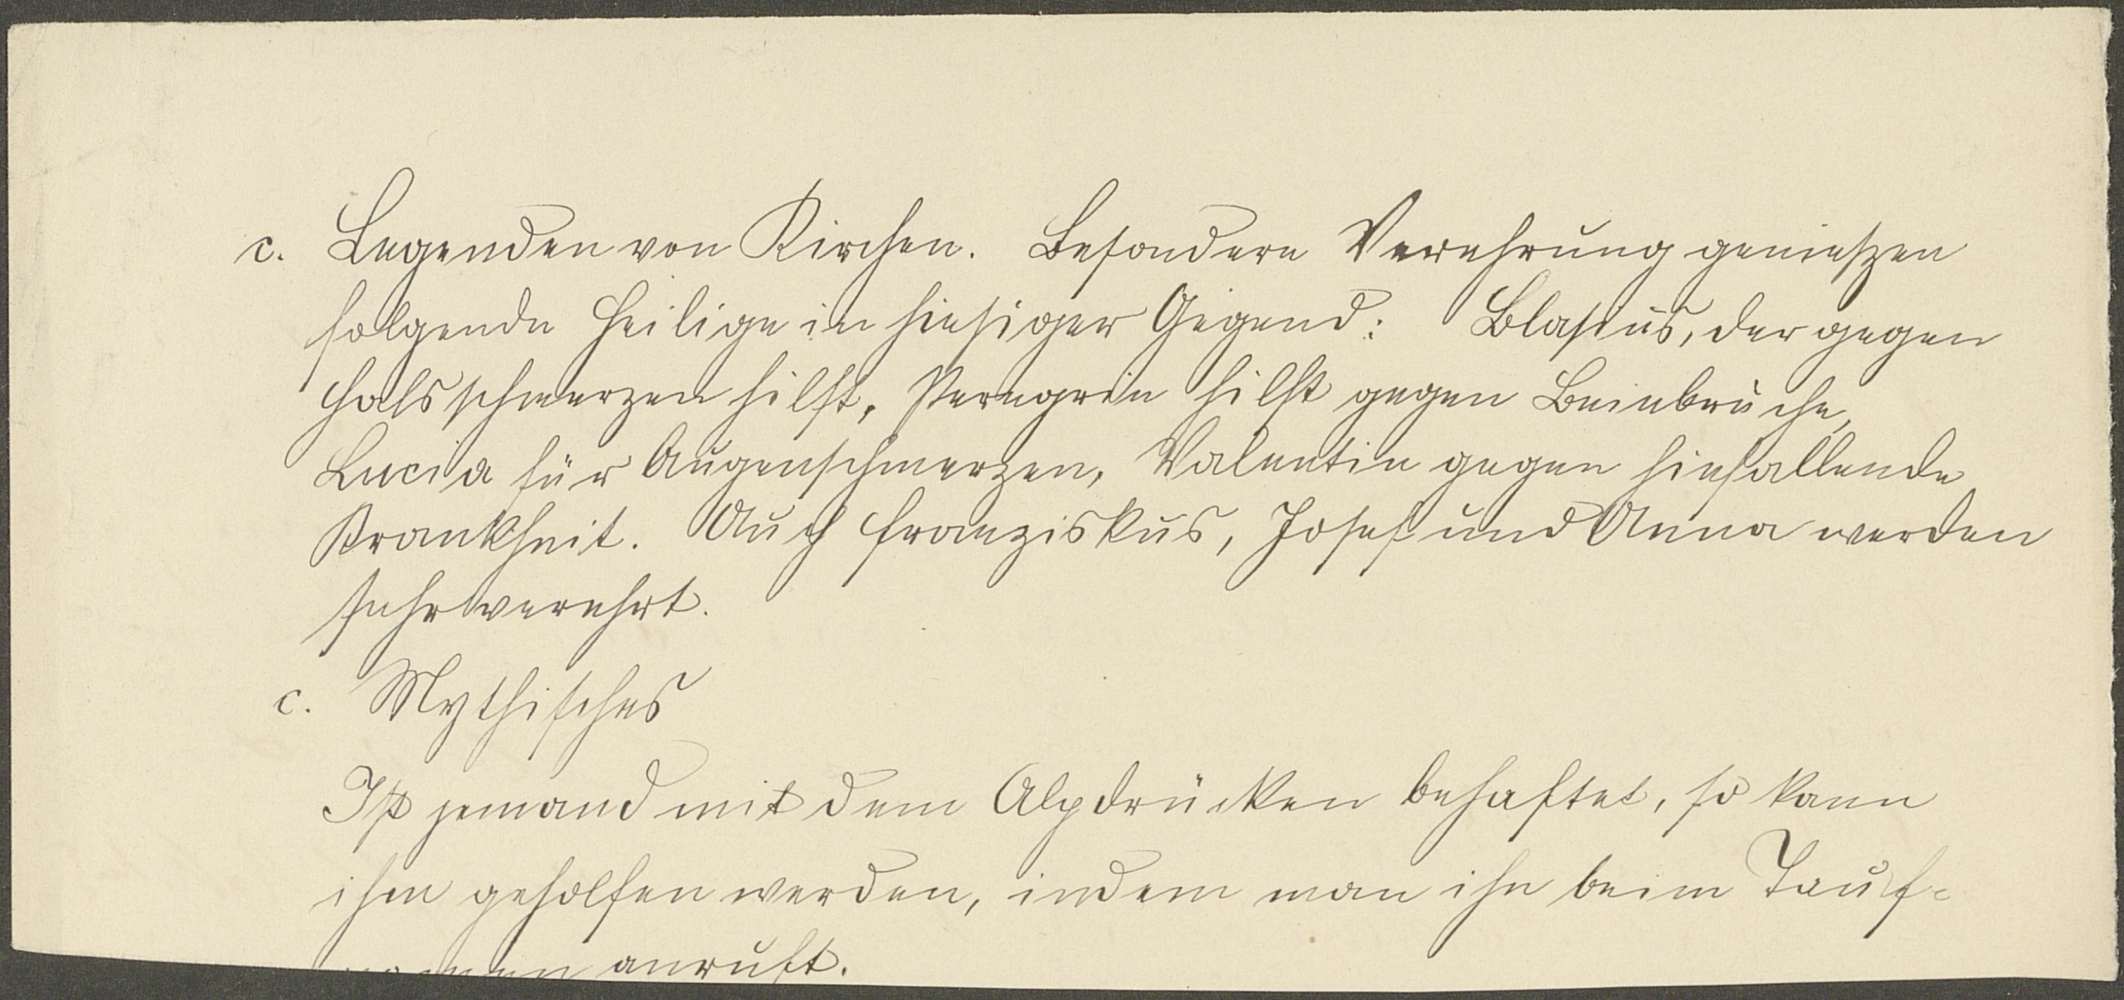 c. Legenden von Kirchen. Besondere Verehrung genießen
folgende Heilige in hiesiger Gegend: Blasius, der gegen
Halsschmerzen hilft, Peregrin hilft gegen Beinbrüche,
Lucia für Augenschmerzen, Valentin gegen hinfallende
Krankheit. Auch Franziskus, Josef und Anna werden
sehr verehrt.
c. Mythisches
Ist jemand mit dem Alpdrücken behaftet, so kann
ihm geholfen werden, indem man ihn beim Tauf-
namen anruft.